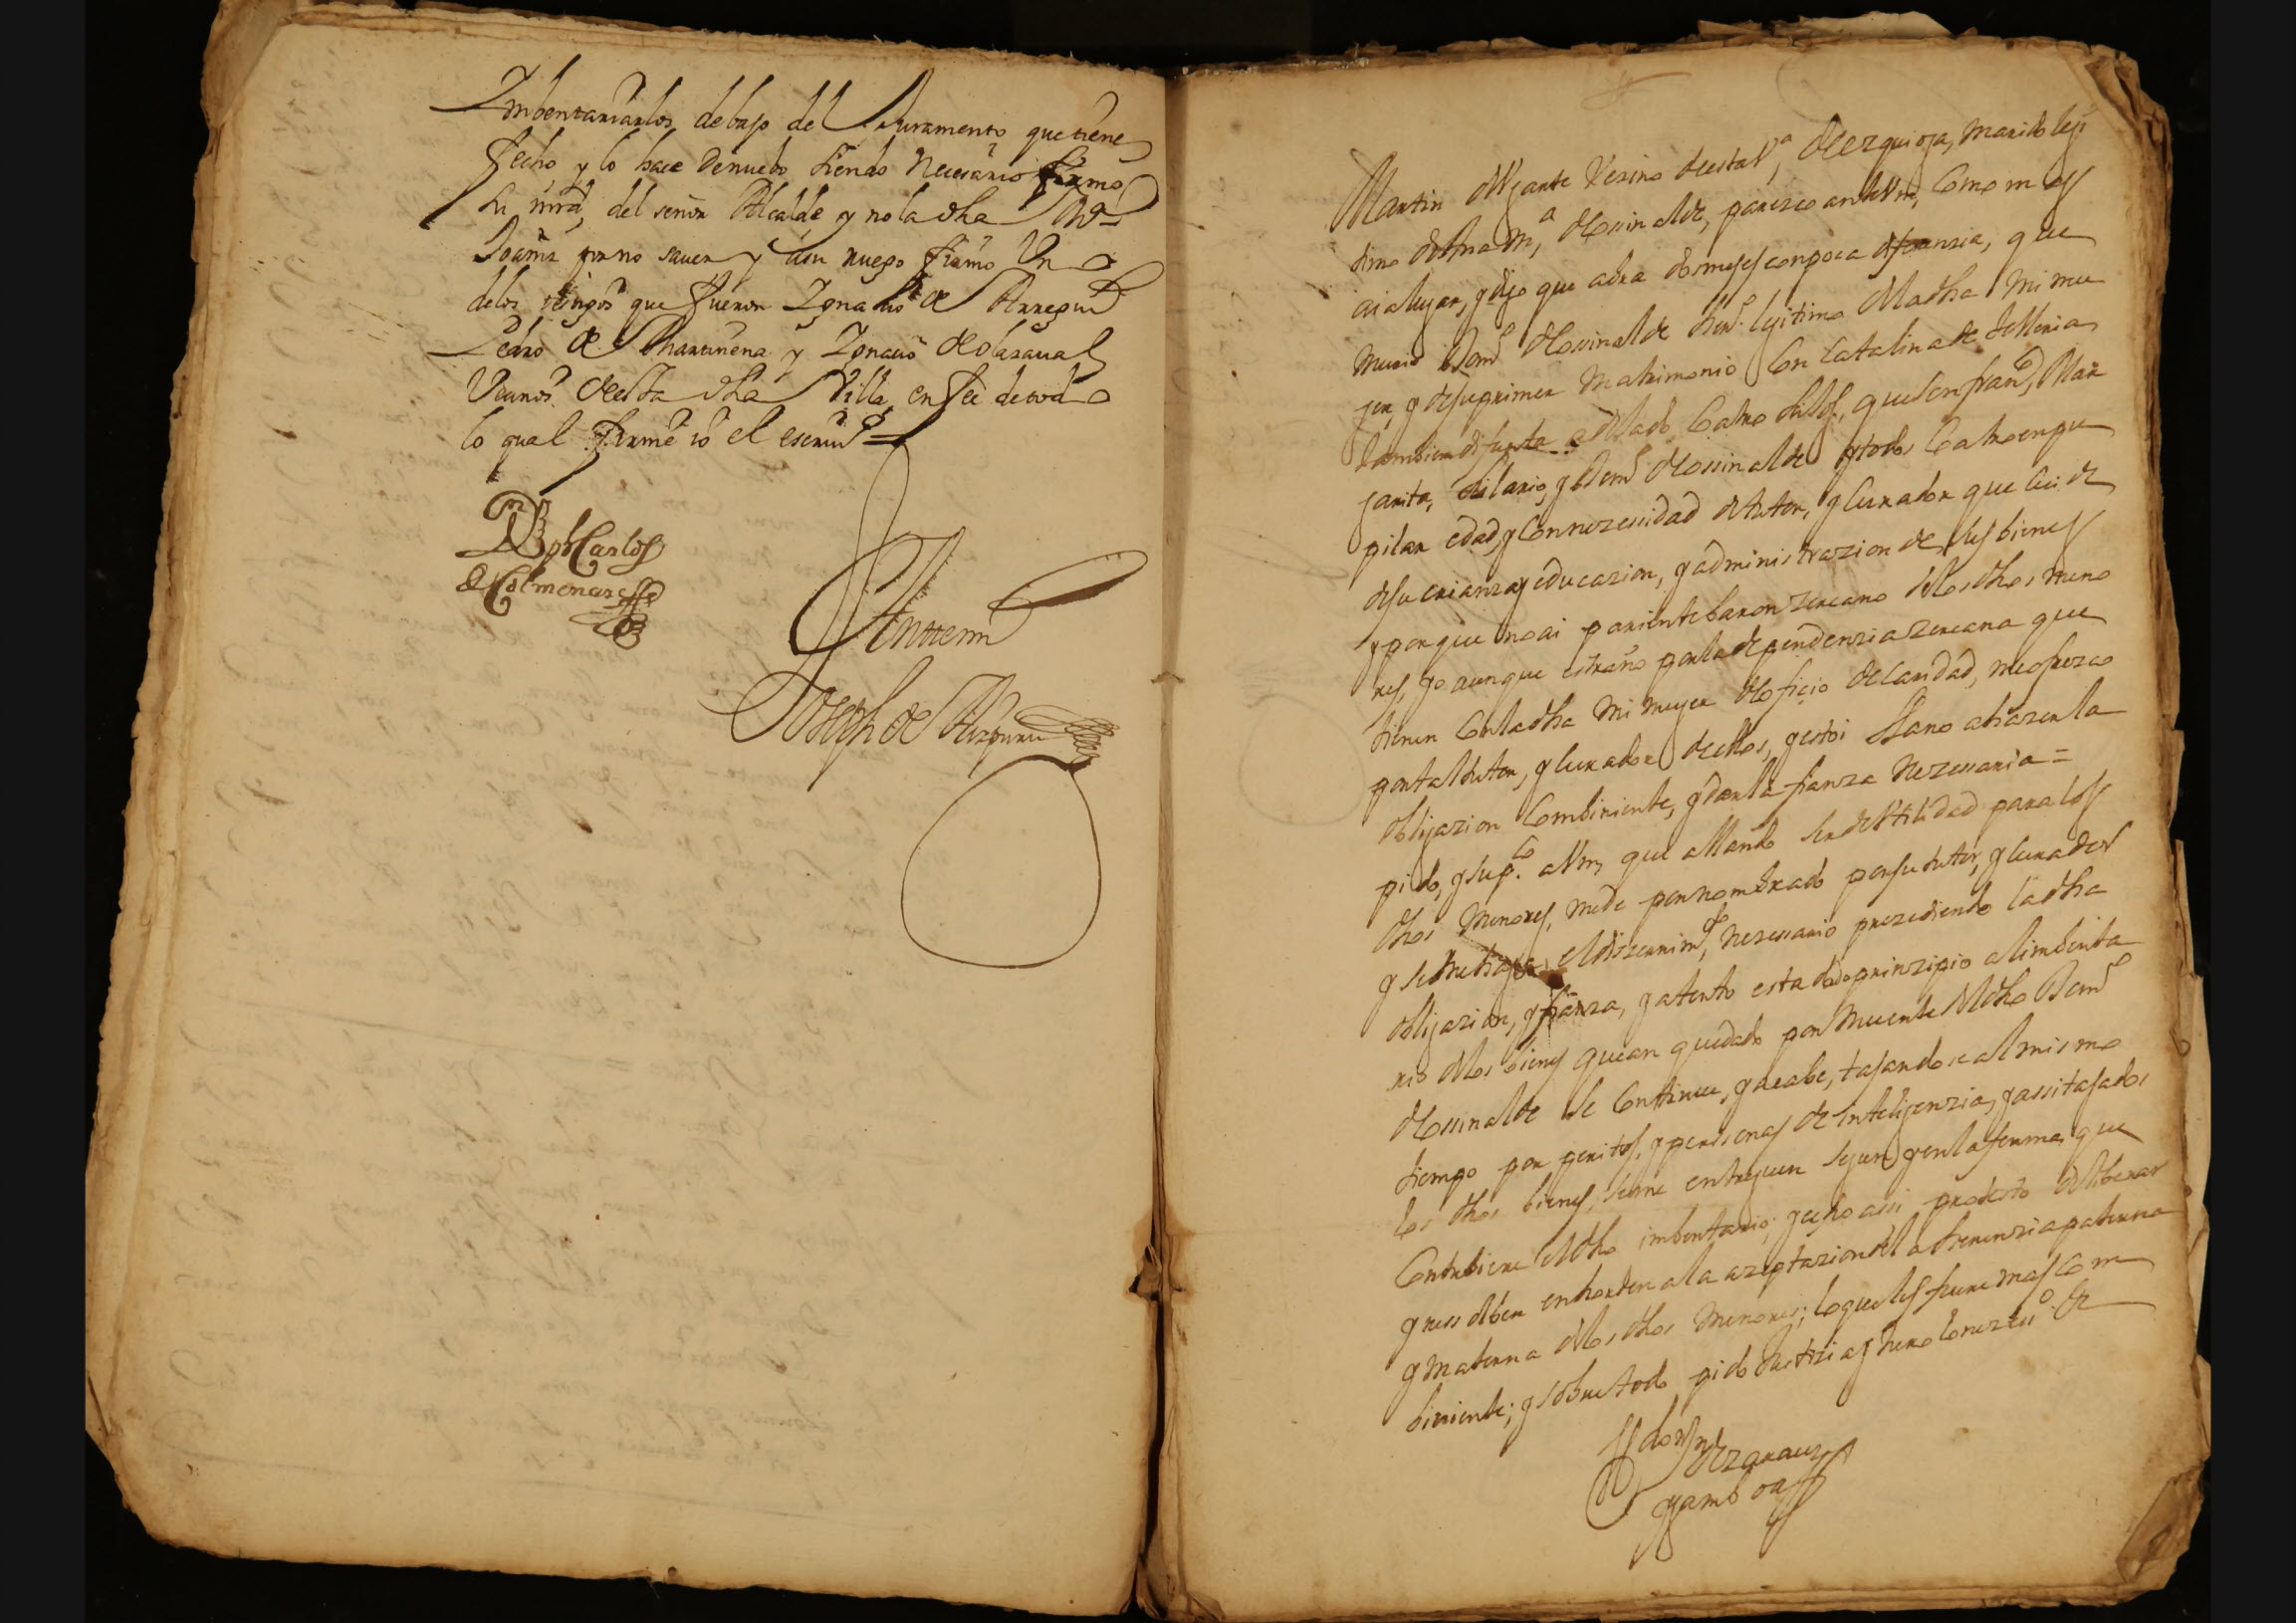 Imbentariarlos debajo del Juramento que tiene
fecho y lo hace denuebo siendo Necesario firmo
su mrd, del señor Alcalde y no la dha
por no saver y a su ruego firmo Un
delos testigos que fueron Ignacio de Arregui
Pedro de y Ignacio de olasaual
Vecinos desta dha Villa, en fee de todo
lo qual firme io el escriuº =
Joph Carlos
de Colmenares
Antemi
Joseph de Aizpuru
Martin de Ugarte Vezino desta Vª, de ezquioga, marido legi
timo de Ana Mª, de ossinalde, parezco ante Vm, como mas
aia lugar, y digo que abra dos meses con poca distanzia, que
murio Dom.º de ossinalde herº. legitimo de la dha mi mu
jer, y de su primer Matrimonio con Catalina de telleria
tambien difunta a dejado Catro hijos, que son franco, Mar
garita, hilario, y Domº de ossinalde y todos Catro en pu
pilar edad, y con nezessidad de tutor, y Curador que cuide
de su crianza, y educazion, y administrazion de sus bienes
y porque no ai pariente baron zercano de los dhos meno
res, yo aunque estraño por la dependenzia zercana que
tienen con la dha mi mujer de oficio de Caridad, me ofrezco
por tal tutor, y Curador de ellos, y estoi llano a hazer la
obligazion Combiniente, y dar la fianza nezessaria =
pido, y supco. a Vm, que allando ser de Utilidad para los
dhos Menores, me de por nombrado por su tutor, y Curador
y se me haga el diszernimto, nezessario prezediendo la dha
obligazion, y fianza, y atento esta dado prinzipio al imbenta
rio de los bienes que an quedado por muerte del dho Domº
de ossinalde se Continue, y acabe, tasandose al mismo
tiempo por peritos, y personas de inteligenzia, y assi tasados
los dhos bienes, se me entreguen segun, y en la forma, que
Contubiere el dho imbentario, y echo assi protesto deliberar
y ressolber en horden a la azeptazion de la herenzia paterna
y materna de los dhos Menores; lo que les fuere mas Com
biniente; y sobre todo pido Justizia y Juro lo nezessº. &
de zarauz
y gamboa